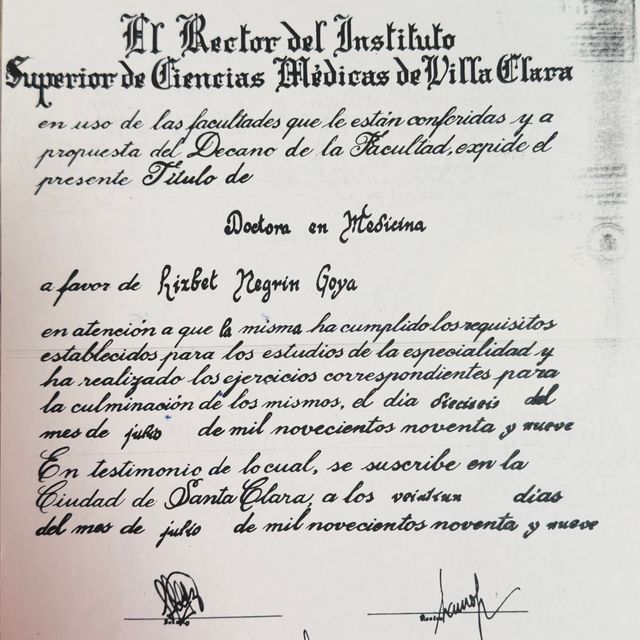 El Rector del Instituto
Superior de Ciencias Médicas de Villa Clara
en uso de las facultades que le están conferidas y a
propuesta del Decano de la Facultad, expide el
presente Título de
Doctora en Medicina
a favor de Lizbet Negrín Goya
en atención a que la misma ha cumplido los requisitos
establecidos para los estudios de la especialidad y
ha realizado los ejercicios correspondientes para
la culminación de los mismos, el día dieciseis del
mes de julio de mil novecientos noventa y nueve
En testimonio de lo cual, se suscribe en la
Ciudad de Santa Clara, a los veintiun dias
del mes de julio de mil novecientos noventa y nueve
Decano Rector